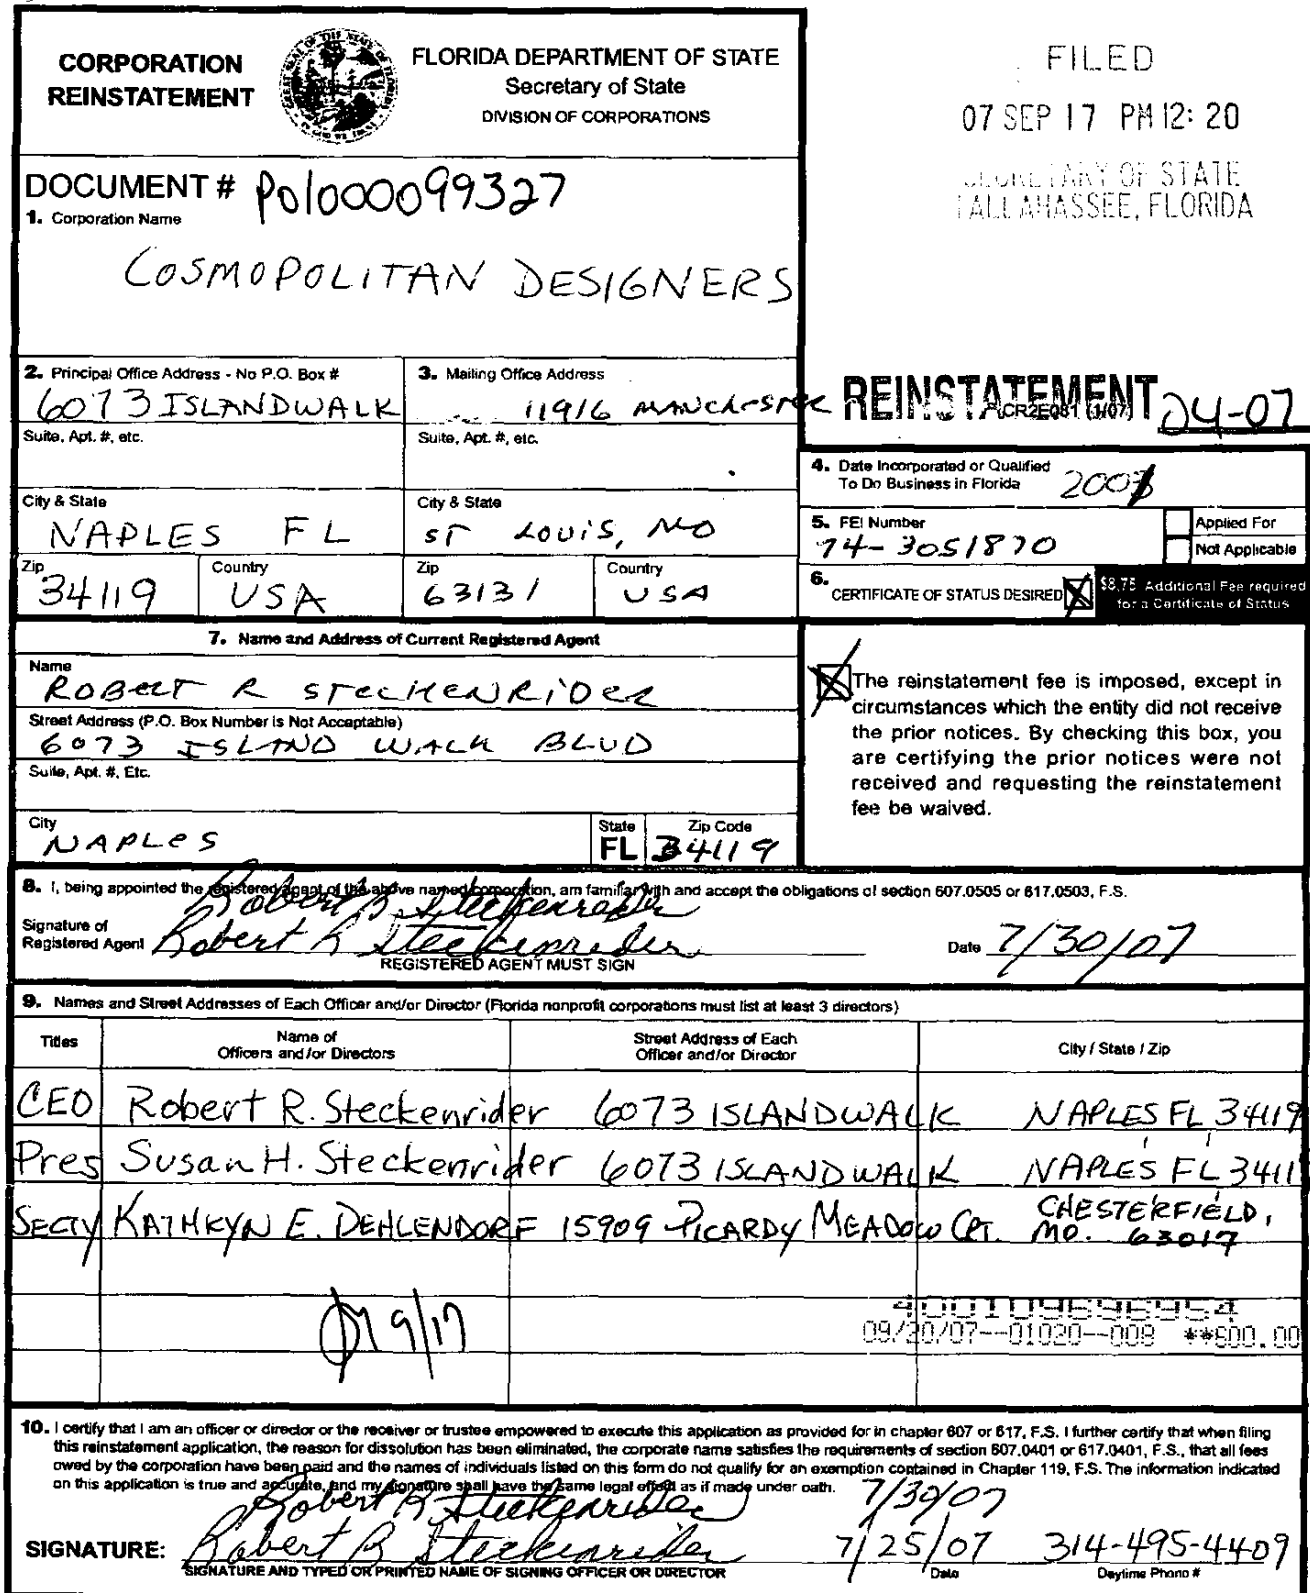 CORPORATION
REINSTATEMENT
FLORIDA DEPARTMENT OF STATE
Secretary of State
DIVISION OF CORPORATIONS
FILED
07 SEP 17 PM 12: 20
SECRETARY OF STATE
TALLAHASSEE, FLORIDA
DOCUMENT # P01000099327
1. Corporation Name
COSMOPOLITAN DESIGNERS
2. Principal Office Address - No P.O. Box #
6073 ISLANDWALK
3. Mailing Office Address
11916 MANCHESTER
REINSTATEMENT 04-07
CR2E081 (1/07)
Suite, Apt. #, etc.
Suite, Apt. #, etc.
4. Date Incorporated or Qualified
To Do Business in Florida
City & State
NAPLES FL
City & State
ST LOUIS, MO
5. FEI Number
74-3051870
Applied For
Not Applicable
Zip
34119
Country
USA
Zip
63131
Country
USA
6. CERTIFICATE OF STATUS DESIRED
$8.75 Additional Fee required
for a Certificate of Status
7. Name and Address of Current Registered Agent
Name
ROBERT R STECKENRIDER
Street Address (P.O. Box Number is Not Acceptable)
6073 ISLAND WALK BLVD
Suite, Apt. #, Etc.
City
NAPLES
State
FL
Zip Code
34119
The reinstatement fee is imposed, except in
circumstances which the entity did not receive
the prior notices. By checking this box, you
are certifying the prior notices were not
received and requesting the reinstatement
fee be waived.
8. I, being appointed the registered agent of the above named corporation, am familiar with and accept the obligations of section 607.0505 or 617.0503, F.S.
Robert R Steckenrider
Signature of
Registered Agent Robert R Steckenrider
Date 7/30/07
REGISTERED AGENT MUST SIGN
9. Names and Street Addresses of Each Officer and/or Director (Florida nonprofit corporations must list at least 3 directors)
Titles
Name of
Officers and/or Directors
Street Address of Each
Officer and/or Director
City / State / Zip
CEO Robert R. Steckenrider 6073 ISLANDWALK NAPLES FL 34119
Pres Susan H. Steckenrider 6073 ISLANDWALK NAPLES FL 3411
SECTY KATHRYN E. DEHLENDORF 15909 PICARDY MEADOW CRT. CHESTERFIELD,
MO. 63017
9/17
400109696954
09/20/07--01020--008 **600.00
10. I certify that I am an officer or director or the receiver or trustee empowered to execute this application as provided for in chapter 607 or 617, F.S. I further certify that when filing
this reinstatement application, the reason for dissolution has been eliminated, the corporate name satisfies the requirements of section 607.0401 or 617.0401, F.S., that all fees
owed by the corporation have been paid and the names of individuals listed on this form do not qualify for an exemption contained in Chapter 119, F.S. The information indicated
on this application is true and accurate, and my signature shall have the same legal effect as if made under oath.
Robert R Steckenrider 7/30/07
SIGNATURE: Robert R Steckenrider 7/25/07 314-495-4409
SIGNATURE AND TYPED OR PRINTED NAME OF SIGNING OFFICER OR DIRECTOR
Date
Daytime Phone #